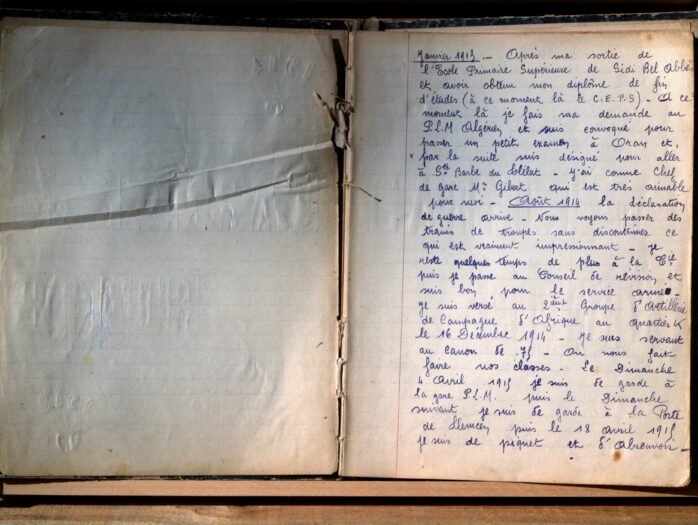 Janvier 1913 _ Après ma sortie de
l'Ecole Primaire Supérieure de Sidi Bel Abbès
et, avoir obtenu mon diplôme de fin
d'études (à ce moment là le C.E.P.S) _ A ce
moment là je fais ma demande au
P.L.M. Algérien et suis convoqué pour
passer un petit examen à Oran et,
par la suite suis désigné pour aller
à Ste Barbe du Tlélat _ J'ai comme Chef
de gare Mr Gibert qui est très aimable
pour moi _ Août 1914 la déclaration
de guerre arrive _ Nous voyons passer des
trains de troupes sans discontinuer ce
qui est vraiment impressionnant _ Je
reste quelques temps de plus à la Cie
puis je passe au Conseil de révision et
suis bon pour le service armé
Je suis versé au 2ème Groupe d'Artillerie
de Campagne d'Afrique au quartier K
le 16 Décembre 1914 _ Je suis servant
au canon de 75 _ On nous fait
faire nos classes _ Le Dimanche
4 Avril 1915 je suis de garde à
la gare P.L.M. puis le Dimanche
suivant je suis de garde à la Porte
de Tlemcen puis le 18 avril 1915
je suis de piquet et d'Abreuvoir _